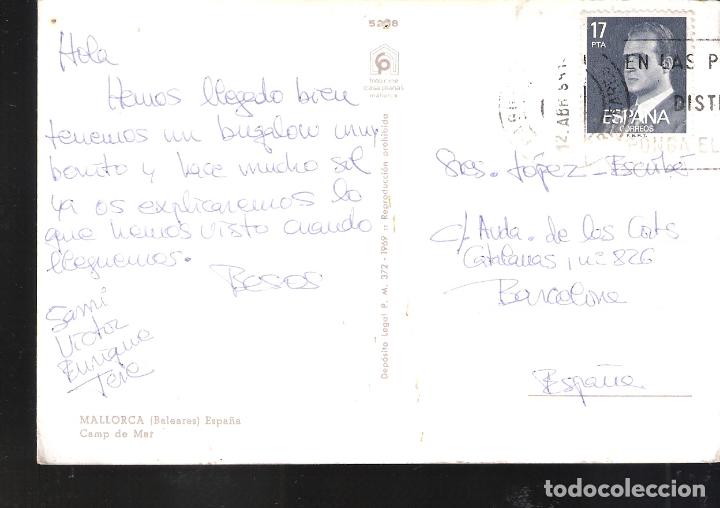 5298
Hola
Hemos llegado bien
tenemos un bugalow muy
bonito y hace mucho sol
ya os explicaremos lo
que hemos visto cuando
lleguemos.
Besos
Sami
Victor
Enrique
Tere
MALLORCA (Baleares) España
Camp de Mar
foto cine
casa planas
mallorca
Depósito Legal P. M. 372 - 1969 :: Reproducción prohibida
17
PTA
ESPAÑA
CORREOS
F.N.M.T.
12 ABR
EN LAS P
DISTR
PONGA EL
Sres. López - Escubé
c/ Avda. de las Corts
Catalanas, nº 826
Barcelona
España.
todocoleccion.net